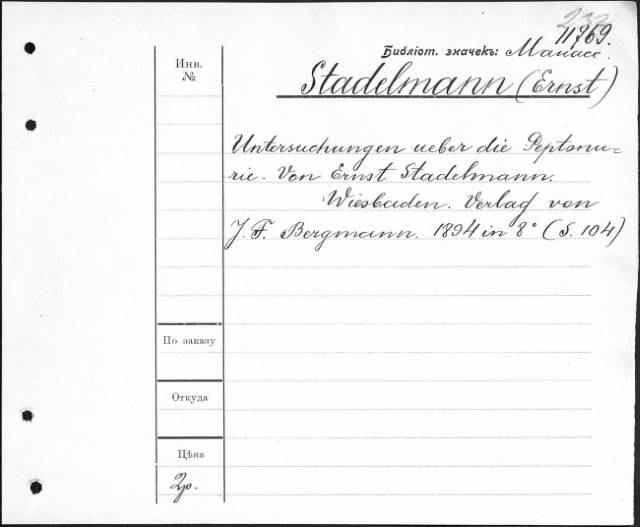 232
11769.
Библіот. значекъ:
Инв.
№
Stadelmann (Ernst)
Untersuchungen ueber die Peptonu=
rie. Von Ernst Stadelmann.
Wiesbaden. Verlag von
J. F. Bergmann. 1894 in 8° (S. 104)
По заказу
Откуда
Цѣна
2р.